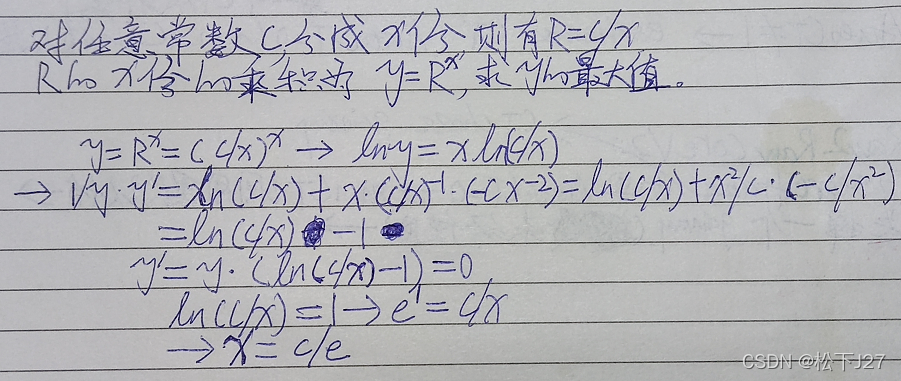 对任意常数C,分成x份 则有R=C/x
R的x份的乘积为 y=Rˣ,求y的最大值。
y=Rˣ=(C/x)ˣ → lny=xln(C/x)
→ 1/y·y'=xln(C/x)+x·(C/x)⁻¹·(-Cx⁻²)=ln(C/x)+x²/C·(-C/x²)
=ln(C/x) -1
y'=y·(ln(C/x)-1)=0
ln(C/x)=1→e¹=C/x
→x=C/e
CSDN @松下J27